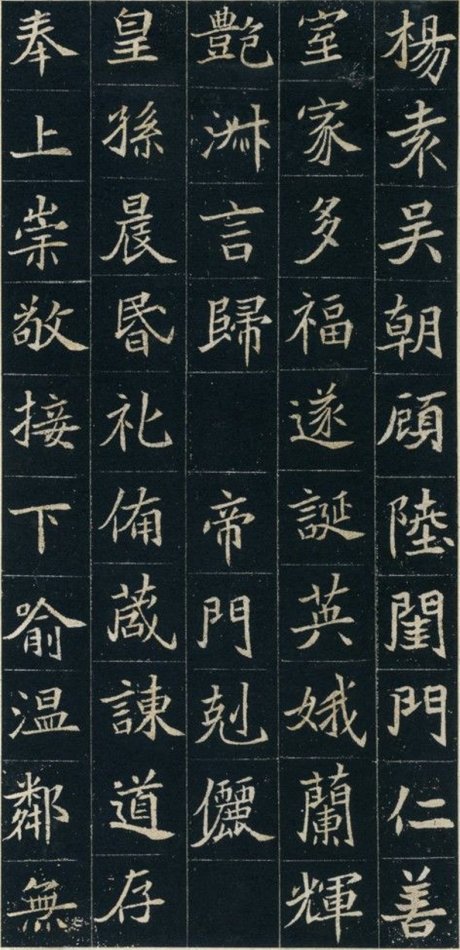 楊袁吳朝頋陸閨門仁善
室家多福遂誕英娥蘭輝
艷淑言歸 帝門剋儷
皇孫晨昬礼俻葴諫道存
奉上崇敬接下喻温鄰無